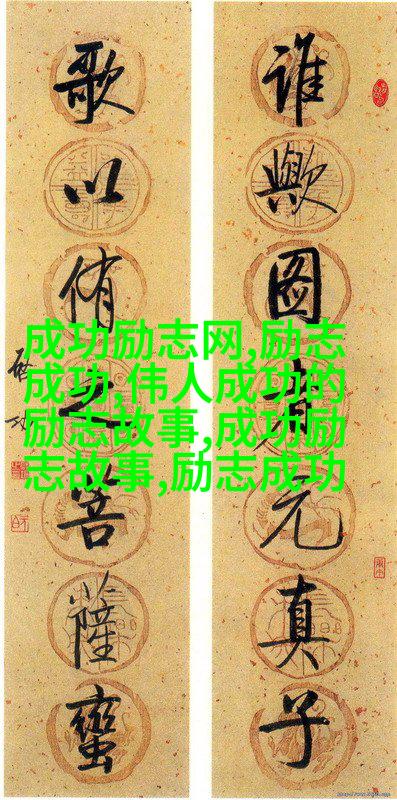 谁歟图元真子
歌以侑之菩薩蠻
成功励志网,励志
成功,伟人成功的
励志故事,成功励
志故事,励志成功